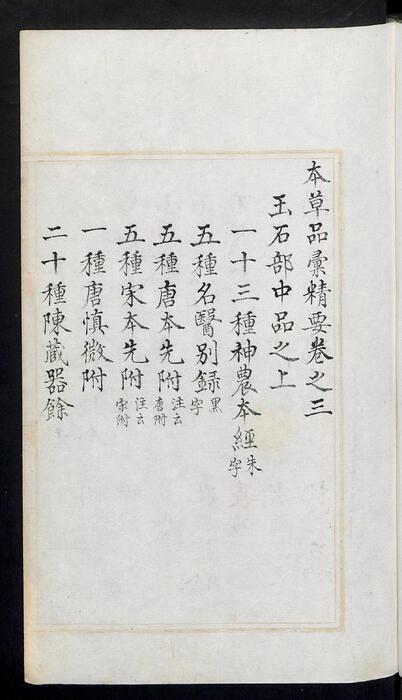 本草品彙精要卷之三
玉石部中品之上
一十三種神農本經朱字
五種名醫別錄黑字
五種唐本先附注云唐附
五種宋本先附注云宋附
一種唐慎微附
二十種陳藏器餘